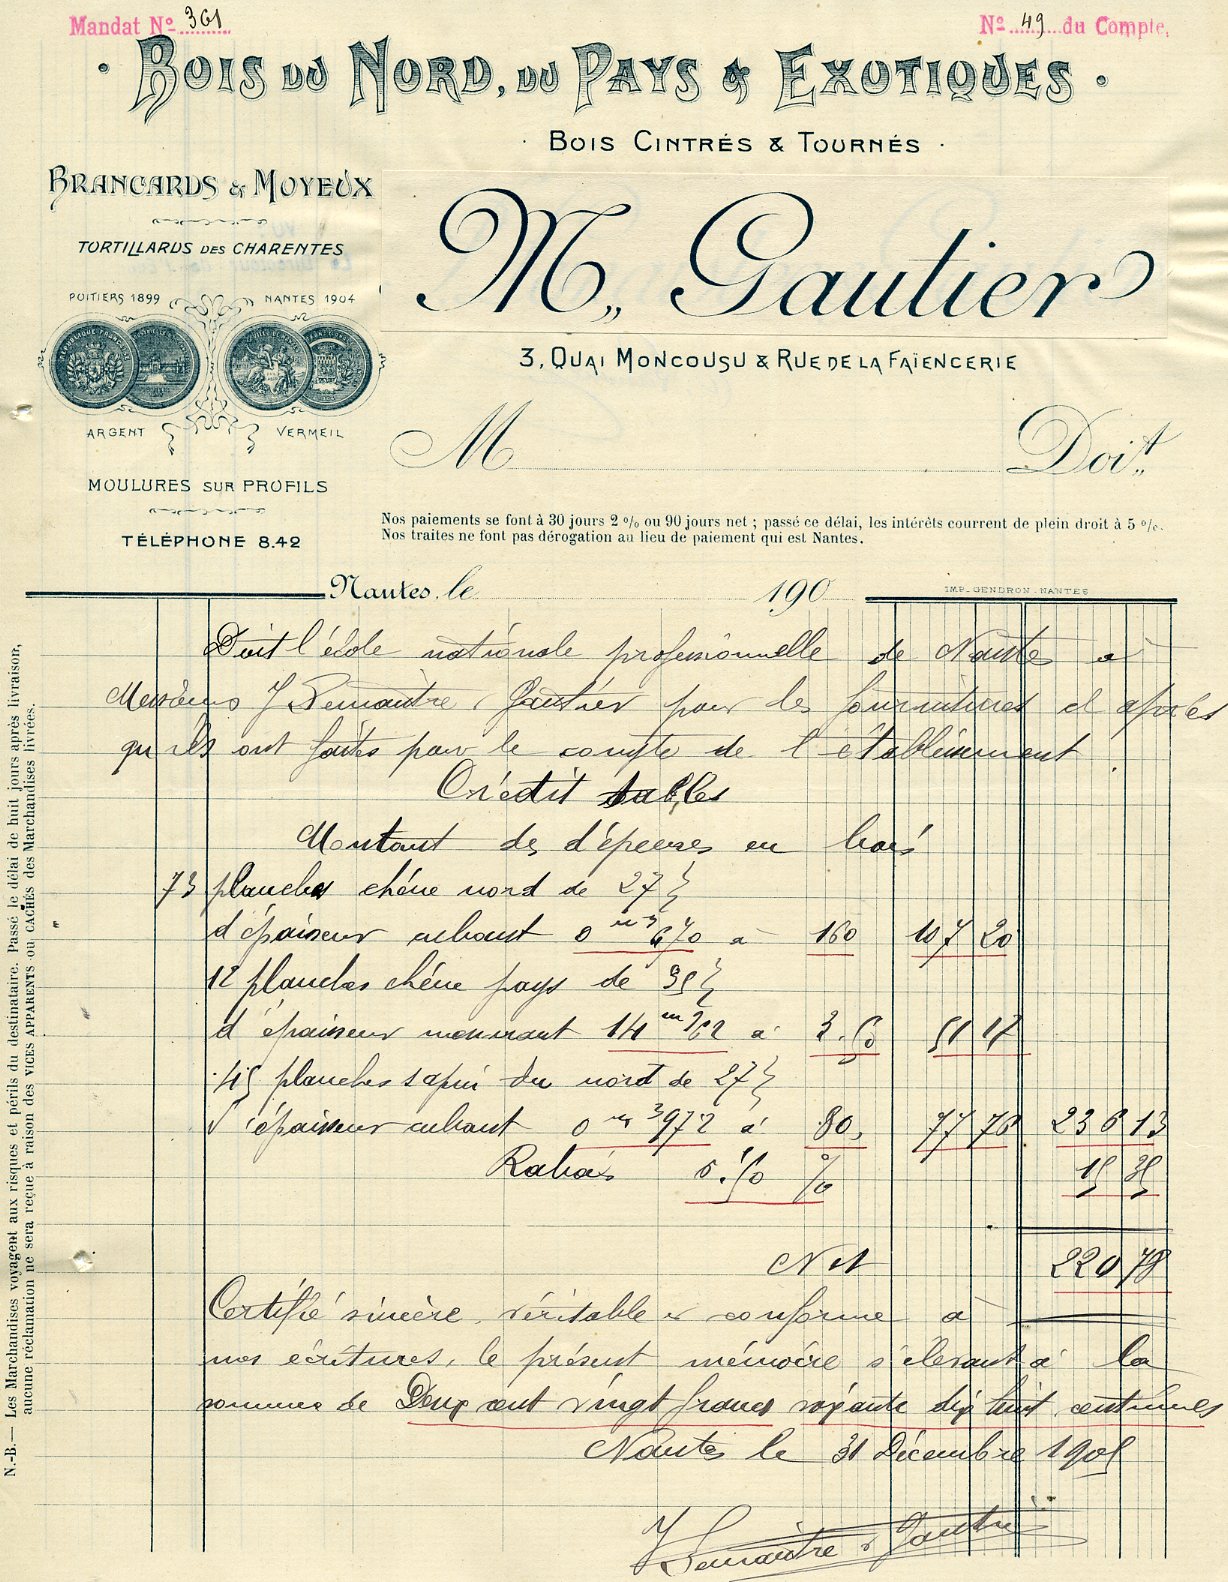 Mandat No 361
No 49 du Compte.
Bois du Nord, du Pays & Exotiques
Bois Cintrés & Tournés
Brancards & Moyeux
Tortillards des Charentes
Poitiers 1899
Nantes 1904
Argent
Vermeil
Moulures sur Profils
Téléphone 8.42
M. Gautier
3, Quai Moncousu & Rue de la Faïencerie
M Doit
Nos paiements se font à 30 jours 2 % ou 90 jours net ; passé ce délai, les intérêts courrent de plein droit à 5 %.
Nos traites ne font pas dérogation au lieu de paiement qui est Nantes.
Nantes, le 190
IMP. GENDRON. NANTES
Doit l'école nationale professionnelle de Nantes à
Messieurs J Lemaître & Gautier pour les fournitures ci après
qu'ils ont faites pour le compte de l'établissement
Crédit tables
Montant des dépenses en bois
73 planches chêne nord de 27
d'épaisseur cubant 0 m3 670 à 160 107 20
12 planches chêne pays de 35
d'épaisseur mesurant 14 m 62 à 3.50 51 17
45 planches sapin du nord de 27
d'épaisseur cubant 0 m3 972 à 80, 77 76 236 13
Rabais 6.50 % 15 35
Net 220 78
Certifié sincère, véritable & conforme à
nos écritures, le présent mémoire s'élevant à la
somme de Deux cent vingt francs soixante dix huit centimes
Nantes le 31 Décembre 1905
J Lemaître & Gautier
N.-B. — Les Marchandises voyagent aux risques et périls du destinataire. Passé le délai de huit jours après livraison,
aucune réclamation ne sera reçue à raison des VICES APPARENTS OU CACHÉS des Marchandises livrées.